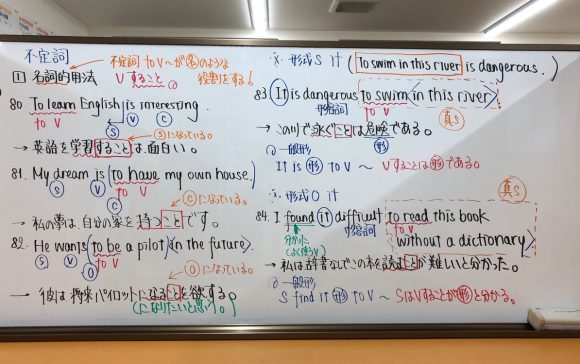 不定詞
不定詞 to V〜が名のような
役割をする!
① 名詞的用法 Vすること
80. To learn English is interesting.
to V
S V C
Sになっている。
→ 英語を学習することは面白い。
81. My dream is to have my own house.
S V to V
C
Cになっている。
→ 私の夢は、自分の家を持つことです。
82. He wants to be a pilot in the future.
S V to V
O
Oになっている。
→ 彼は将来パイロットになることを欲する。
(になりたいと思う。)
※ 形式S it (To swim in this river is dangerous.)
83. It is dangerous to swim in this river
形容詞 to V
真S
→ この川で泳ぐことは危険である。
一般形
It is 形 to V 〜 Vすることは形である
形式O it
真S
84. I found it difficult to read this book
分かった 形容詞 to V
without a dictionary
→ 私は辞書なしでこの本を読むことが難しいと分かった。
一般形
S find it 形 to V 〜 SはVすることが形と分かる。